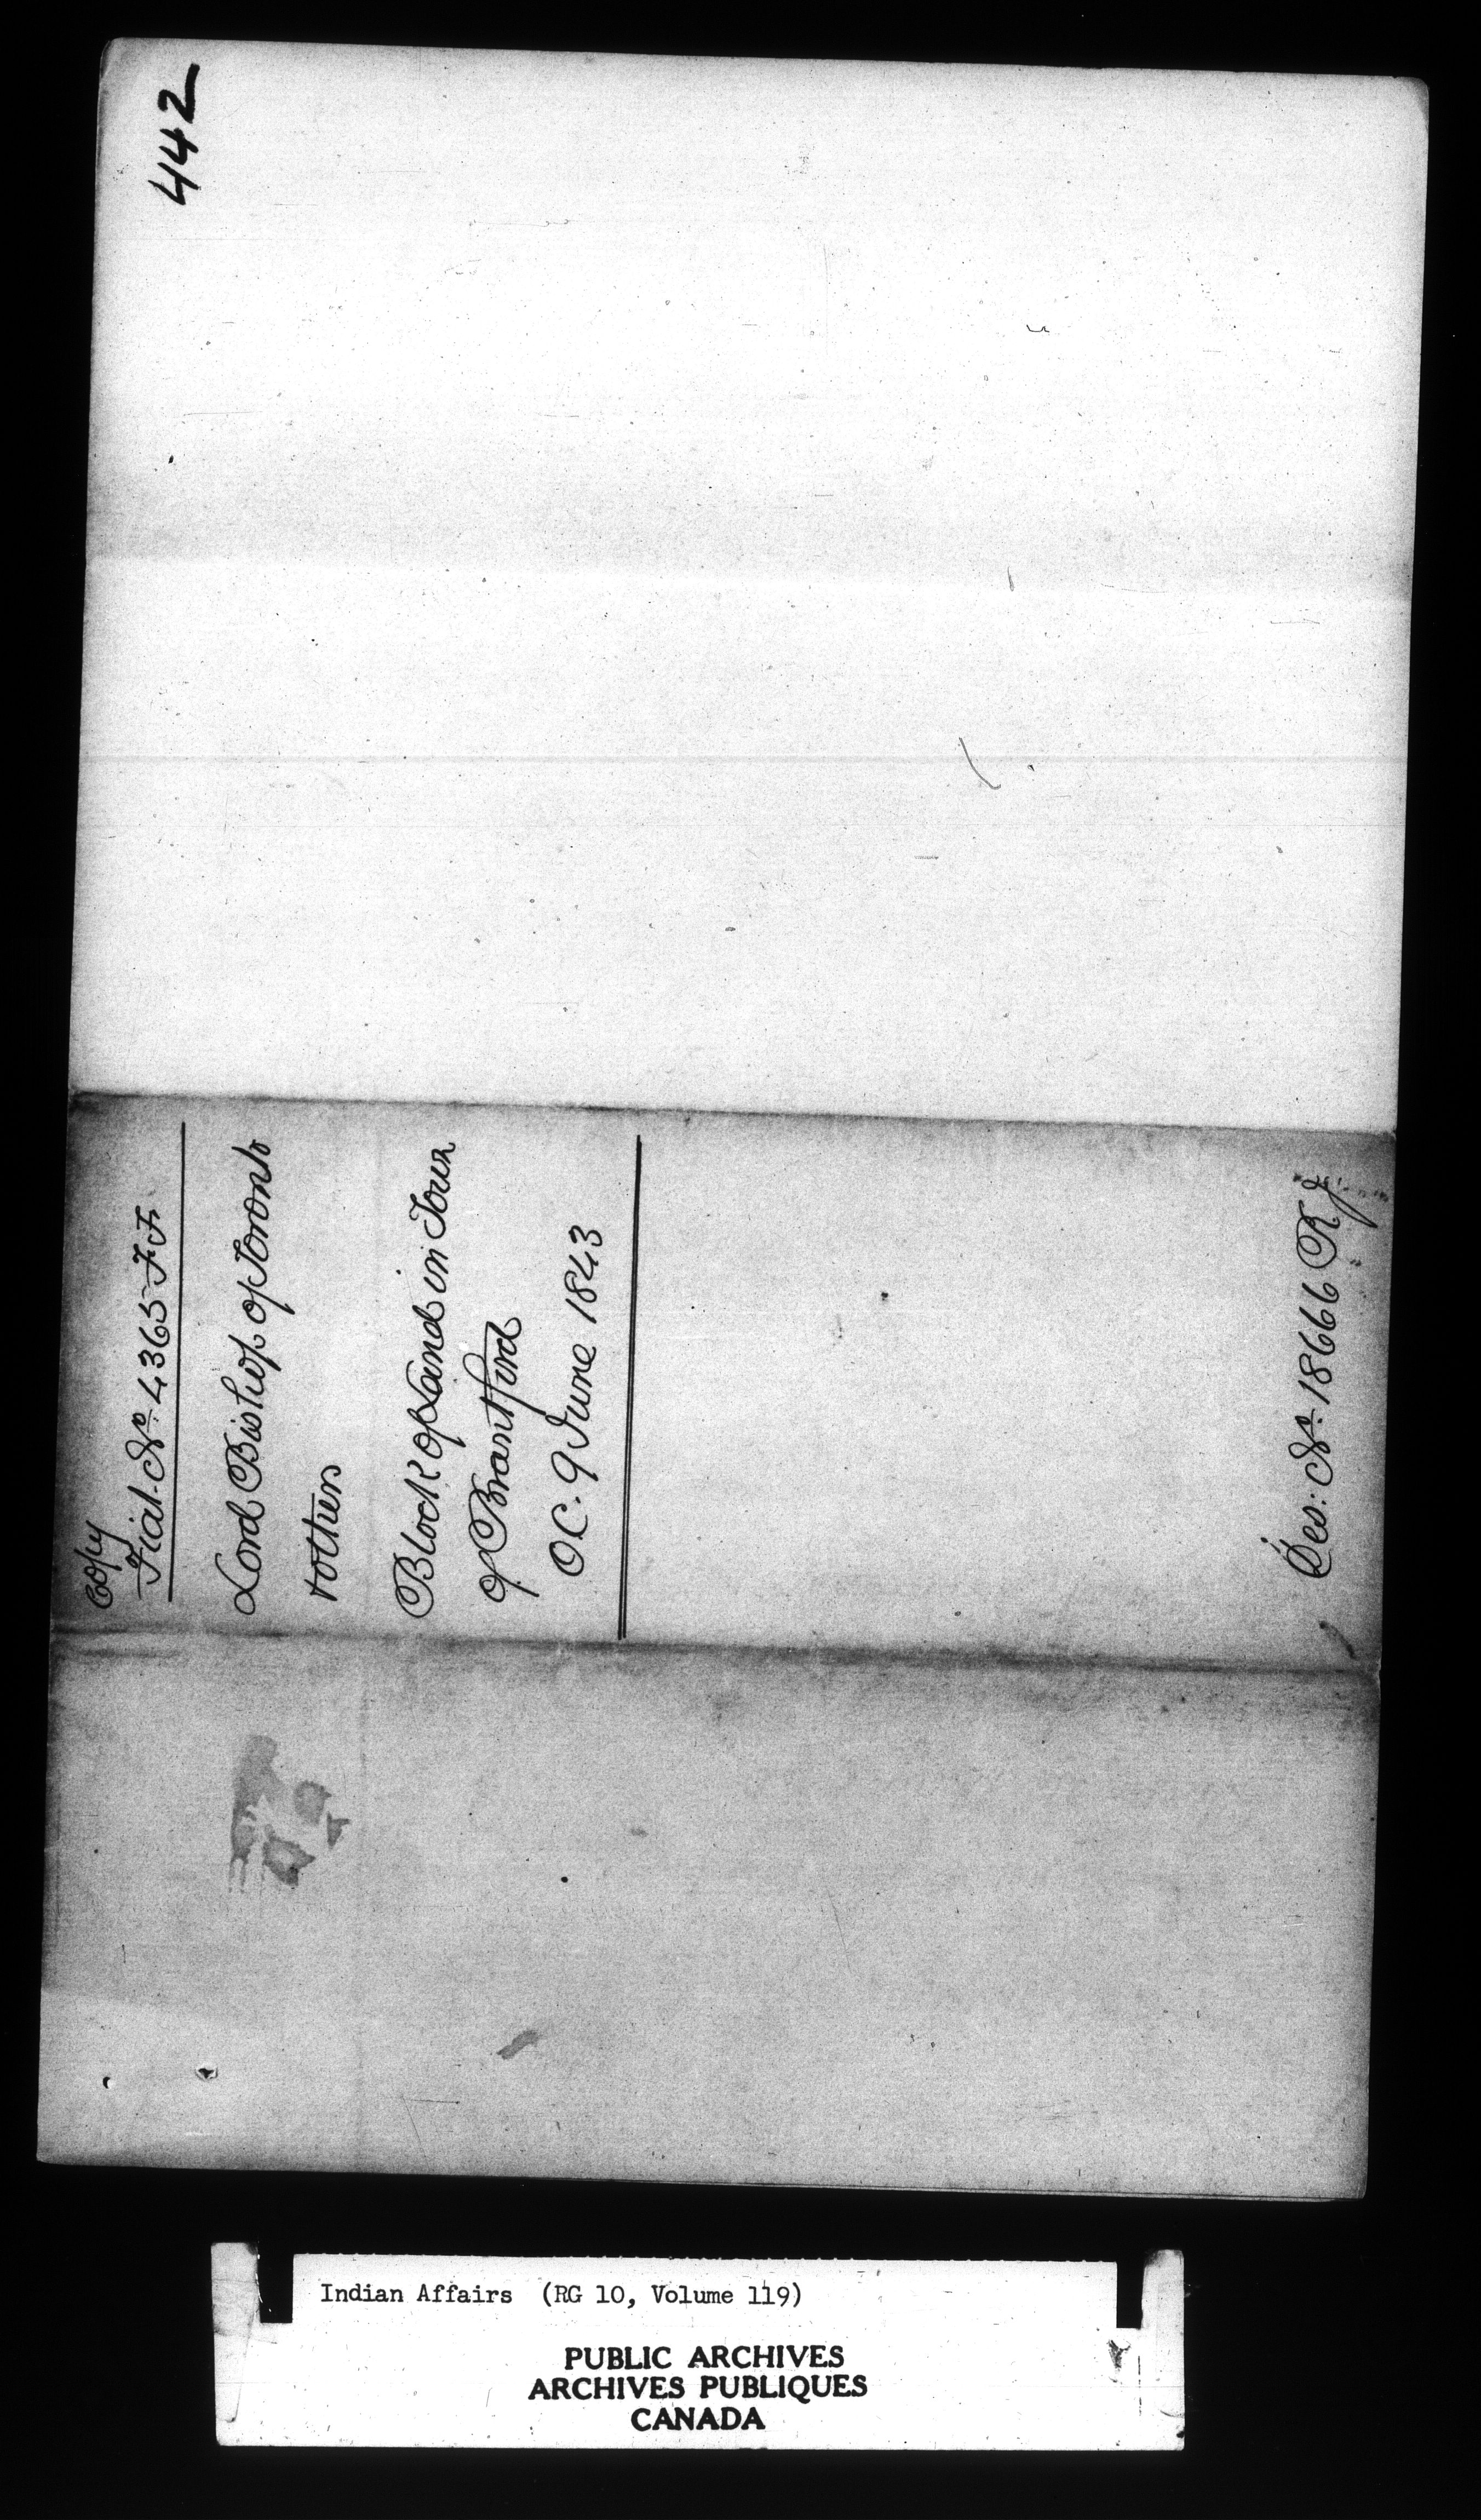 442
Copy
Fiat No. 4365 F.F.
Lord Bishop of Toronto
& others
Block of Land in Town
of Brantford
O.C. 9 June 1843
Des: No. 1866 R.J.
Indian Affairs (RG 10, Volume 119)
PUBLIC ARCHIVES
ARCHIVES PUBLIQUES
CANADA